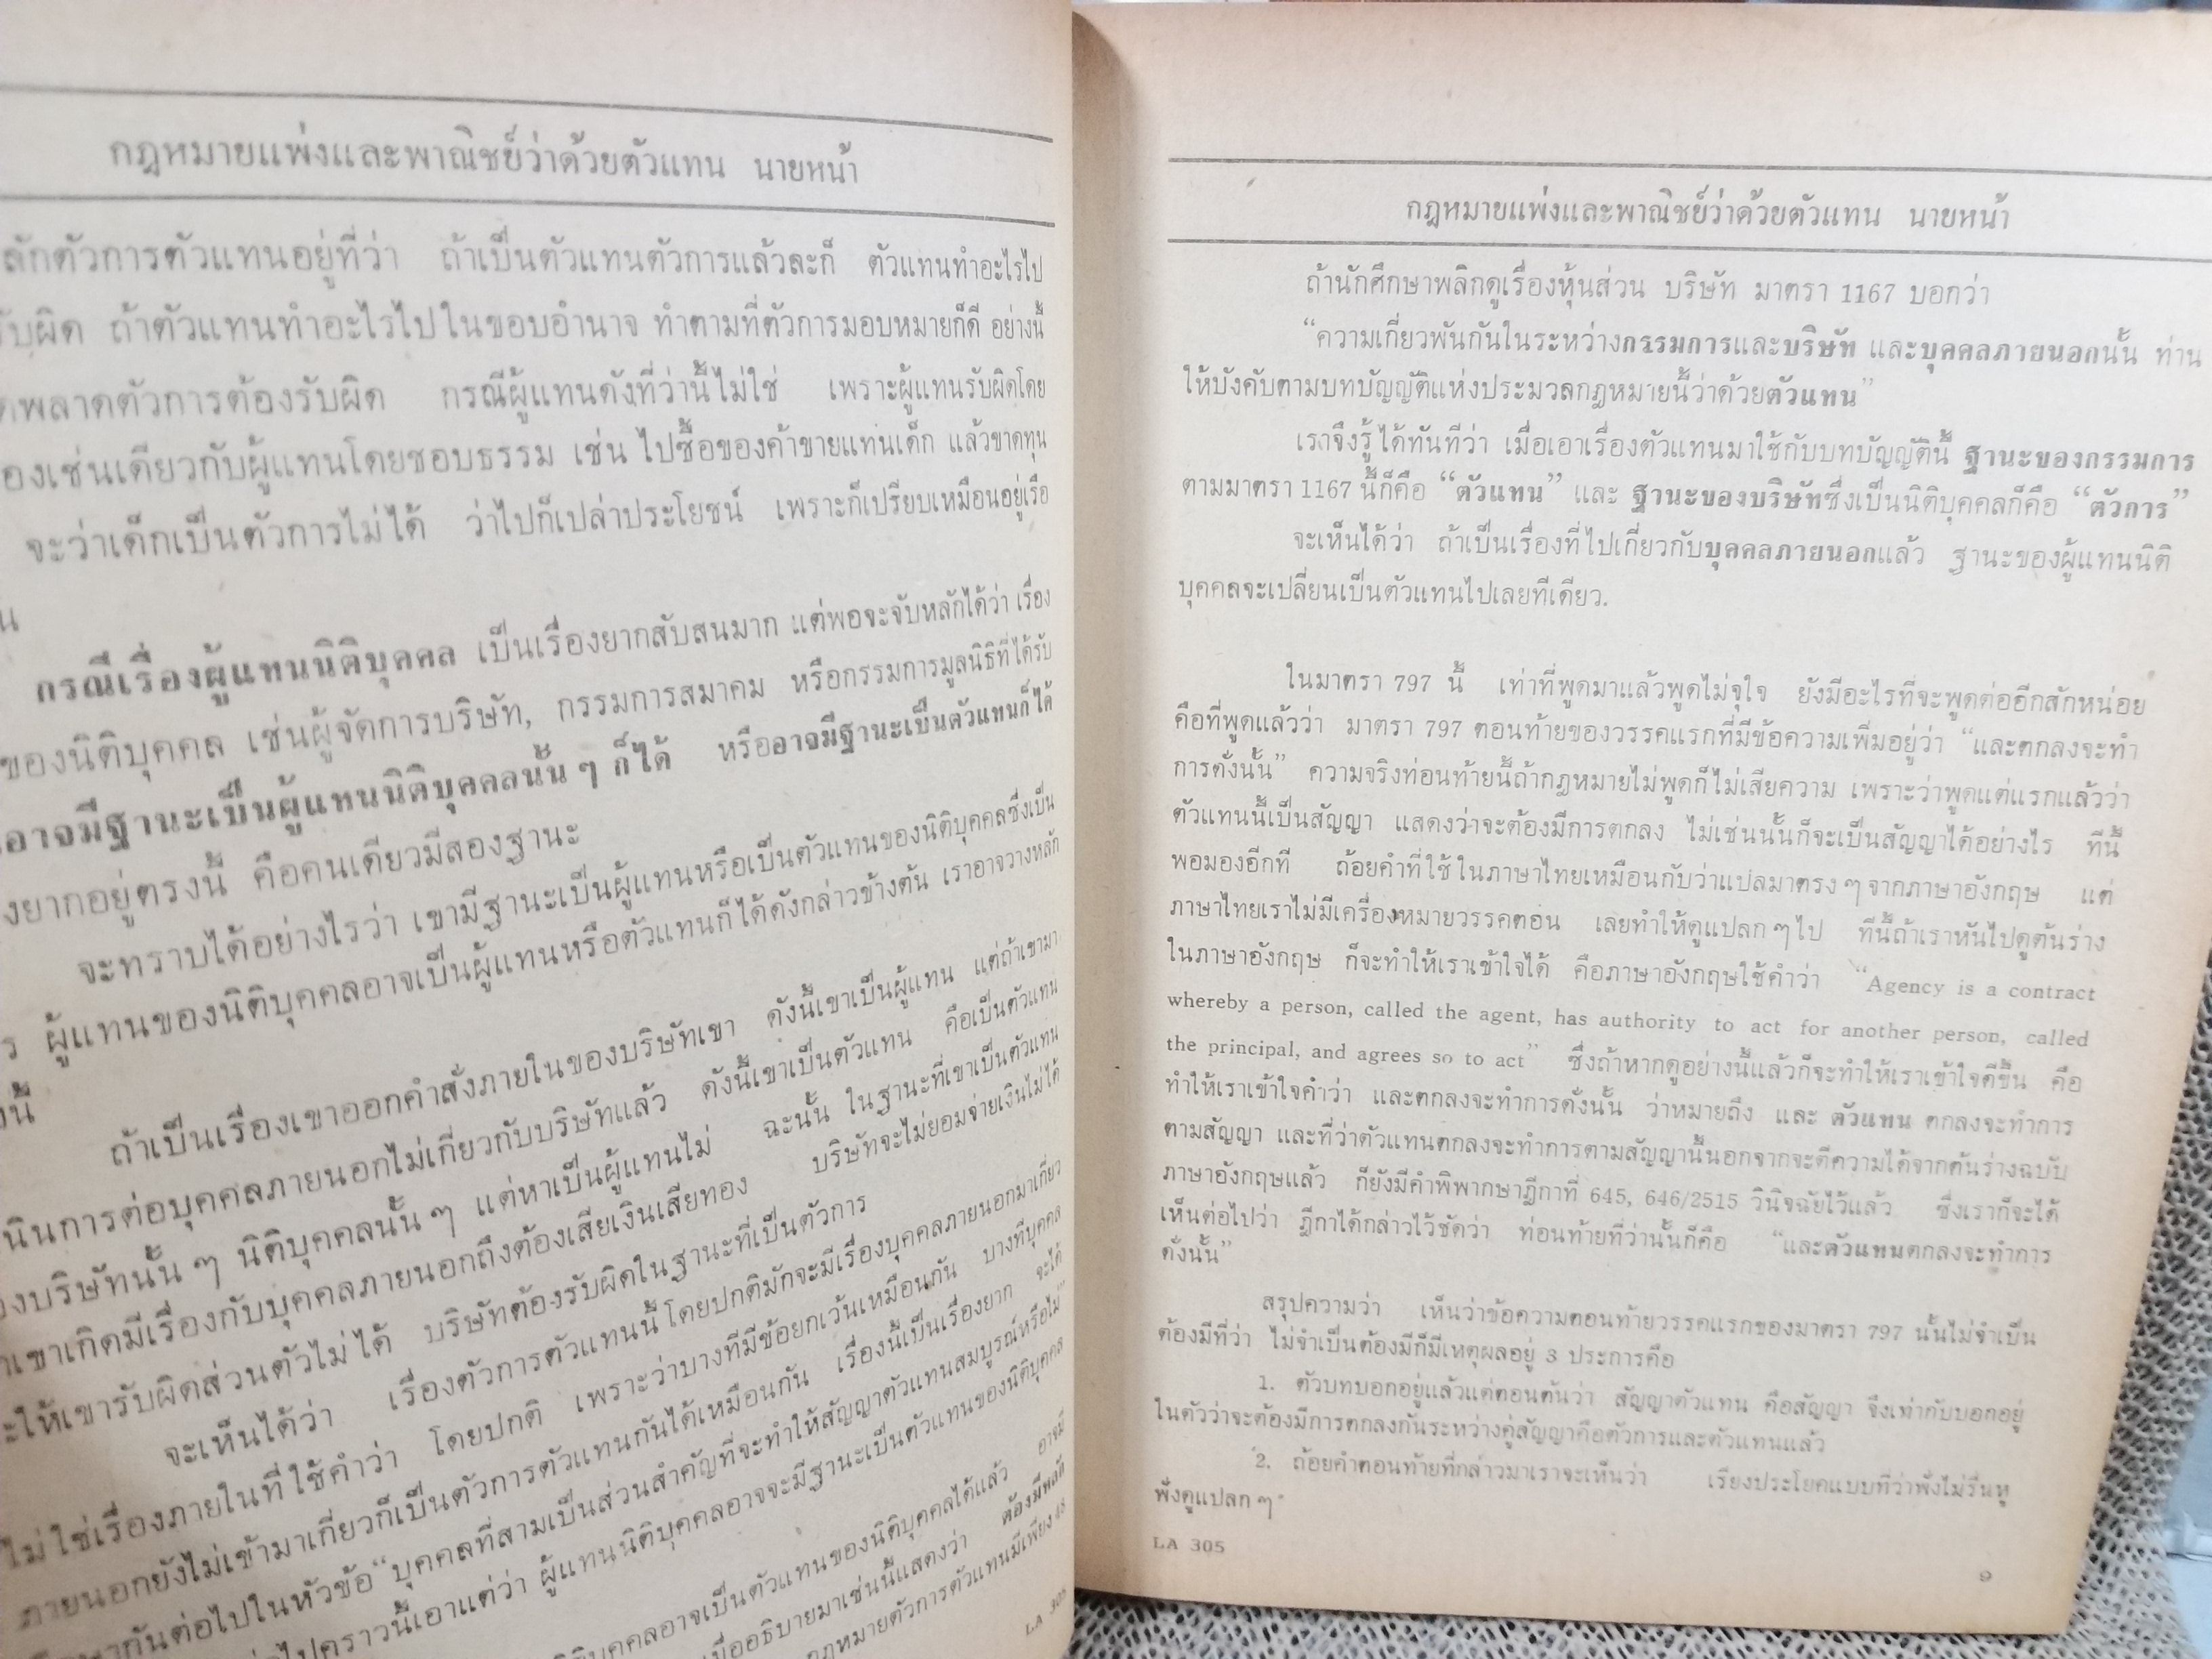 กฎหมายแพ่งและพาณิชย์ว่าด้วยตัวแทน นายหน้า
ลักตัวการตัวแทนอยู่ที่ว่า ถ้าเป็นตัวแทนตัวการแล้วละก็ ตัวแทนทำอะไรไป
รับผิด ถ้าตัวแทนทำอะไรไปในขอบอำนาจ ทำตามที่ตัวการมอบหมายก็ดี อย่างนี้
พลาดตัวการต้องรับผิด กรณีผู้แทนดังที่ว่านี้ไม่ใช่ เพราะผู้แทนรับผิดโดย
องเช่นเดียวกับผู้แทนโดยชอบธรรม เช่น ไปซื้อของค้าขายแทนเด็ก แล้วขาดทุน
จะว่าเด็กเป็นตัวการไม่ได้ ว่าไปก็เปล่าประโยชน์ เพราะก็เปรียบเหมือนอยู่เรือ
น
กรณีเรื่องผู้แทนนิติบุคคล เป็นเรื่องยากสับสนมาก แต่พอจะจับหลักได้ว่า เรื่อง
ของนิติบุคคล เช่นผู้จัดการบริษัท, กรรมการสมาคม หรือกรรมการมูลนิธิที่ได้รับ
อาจมีฐานะเป็นผู้แทนนิติบุคคลนั้น ๆ ก็ได้ หรืออาจมีฐานะเป็นตัวแทนก็ได้
งยากอยู่ตรงนี้ คือคนเดียวมีสองฐานะ
จะทราบได้อย่างไรว่า เขามีฐานะเป็นผู้แทนหรือเป็นตัวแทนของนิติบุคคลซึ่งเป็น
ร ผู้แทนของนิติบุคคลอาจเป็นผู้แทนหรือตัวแทนก็ได้ดังกล่าวข้างต้น เราอาจวางหลัก
งนี้
ถ้าเป็นเรื่องเขาออกคำสั่งภายในของบริษัทเขา ดังนี้เขาเป็นผู้แทน แต่ถ้าเขามา
นินการต่อบุคคลภายนอกไม่เกี่ยวกับบริษัทแล้ว ดังนี้เขาเป็นตัวแทน คือเป็นตัวแทน
องบริษัทนั้น ๆ นิติบุคคลนั้น ๆ แต่หาเป็นผู้แทนไม่ ฉะนั้น ในฐานะที่เขาเป็นตัวแทน
าเขาเกิดมีเรื่องกับบุคคลภายนอกถึงต้องเสียเงินเสียทอง บริษัทจะไม่ยอมจ่ายเงินไม่ได้
ะให้เขารับผิดส่วนตัวไม่ได้ บริษัทต้องรับผิดในฐานะที่เป็นตัวการ
จะเห็นได้ว่า เรื่องตัวการตัวแทนนี้ โดยปกติมักจะมีเรื่องบุคคลภายนอกมาเกี่ยว
ไม่ใช่เรื่องภายในที่ใช้คำว่า โดยปกติ เพราะว่าบางทีมีข้อยกเว้นเหมือนกัน บางทีบุคคล
ภายนอกยังไม่เข้ามาเกี่ยวก็เป็นตัวการตัวแทนกันได้เหมือนกัน เรื่องนี้เป็นเรื่องยาก จะได้
กันต่อไปในหัวข้อ “บุคคลที่สามเป็นส่วนสำคัญที่จะทำให้สัญญาตัวแทนสมบูรณ์หรือไม่”
ไปคราวนี้เอาแต่ว่า ผู้แทนนิติบุคคลอาจจะมีฐานะเป็นตัวแทนของนิติบุคคล
ติบุคคลอาจเป็นตัวแทนของนิติบุคคลได้แล้ว อาจมี
เมื่ออธิบายมาเช่นนี้แสดงว่า ต้องมีหลัก
กฎหมายตัวการตัวแทนมีเพียง
LA 305
กฎหมายแพ่งและพาณิชย์ว่าด้วยตัวแทน นายหน้า
ถ้านักศึกษาพลิกดูเรื่องหุ้นส่วน บริษัท มาตรา 1167 บอกว่า
“ความเกี่ยวพันกันในระหว่างกรรมการและบริษัท และบุคคลภายนอกนั้น ท่าน
ให้บังคับตามบทบัญญัติแห่งประมวลกฎหมายนี้ว่าด้วยตัวแทน”
เราจึงรู้ได้ทันทีว่า เมื่อเอาเรื่องตัวแทนมาใช้กับบทบัญญัตินี้ ฐานะของกรรมการ
ตามมาตรา 1167 นี้ก็คือ “ตัวแทน” และ ฐานะของบริษัทซึ่งเป็นนิติบุคคลก็คือ “ตัวการ”
จะเห็นได้ว่า ถ้าเป็นเรื่องที่ไปเกี่ยวกับบุคคลภายนอกแล้ว ฐานะของผู้แทนนิติ
บุคคลจะเปลี่ยนเป็นตัวแทนไปเลยทีเดียว.
ในมาตรา 797 นี้ เท่าที่พูดมาแล้วพูดไม่จุใจ ยังมีอะไรที่จะพูดต่ออีกสักหน่อย
คือที่พูดแล้วว่า มาตรา 797 ตอนท้ายของวรรคแรกที่มีข้อความเพิ่มอยู่ว่า “และตกลงจะทำ
การดั่งนั้น” ความจริงท่อนท้ายนี้ถ้ากฎหมายไม่พูดก็ไม่เสียความ เพราะว่าพูดแต่แรกแล้วว่า
ตัวแทนนี้เป็นสัญญา แสดงว่าจะต้องมีการตกลง ไม่เช่นนั้นก็จะเป็นสัญญาได้อย่างไร ทีนี้
พอมองอีกที ถ้อยคำที่ใช้ในภาษาไทยเหมือนกับว่าแปลมาตรง ๆ จากภาษาอังกฤษ แต่
ภาษาไทยเราไม่มีเครื่องหมายวรรคตอน เลยทำให้ดูแปลก ๆ ไป ทีนี้ถ้าเราหันไปดูต้นร่าง
ในภาษาอังกฤษ ก็จะทำให้เราเข้าใจได้ คือภาษาอังกฤษใช้คำว่า “Agency is a contract
whereby a person, called the agent, has authority to act for another person, called
the principal, and agrees so to act” ซึ่งถ้าหากดูอย่างนี้แล้วก็จะทำให้เราเข้าใจดีขึ้น คือ
ทำให้เราเข้าใจคำว่า และตกลงจะทำการดั่งนั้น ว่าหมายถึง และ ตัวแทน ตกลงจะทำการ
ตามสัญญา และที่ว่าตัวแทนตกลงจะทำการตามสัญญานั้นนอกจากจะตีความได้จากต้นร่างฉบับ
ภาษาอังกฤษแล้ว ก็ยังมีคำพิพากษาฎีกาที่ 645, 646/2515 วินิจฉัยไว้แล้ว ซึ่งเราก็จะได้
เห็นต่อไปว่า ฎีกาได้กล่าวไว้ชัดว่า ท่อนท้ายที่ว่านั้นก็คือ “และตัวแทนตกลงจะทำการ
ดั่งนั้น”
สรุปความว่า เห็นว่าข้อความตอนท้ายวรรคแรกของมาตรา 797 นั้นไม่จำเป็น
ต้องมีที่ว่า ไม่จำเป็นต้องมีก็มีเหตุผลอยู่ 3 ประการคือ
1. ตัวบทบอกอยู่แล้วแต่ตอนต้นว่า สัญญาตัวแทน คือสัญญา จึงเท่ากับบอกอยู่
ในตัวว่าจะต้องมีการตกลงกันระหว่างคู่สัญญาคือตัวการและตัวแทนแล้ว
2. ถ้อยคำตอนท้ายที่กล่าวมาเราจะเห็นว่า เรียงประโยคแบบที่ว่าฟังไม่รื่นหู
ฟังดูแปลก ๆ
LA 305
9